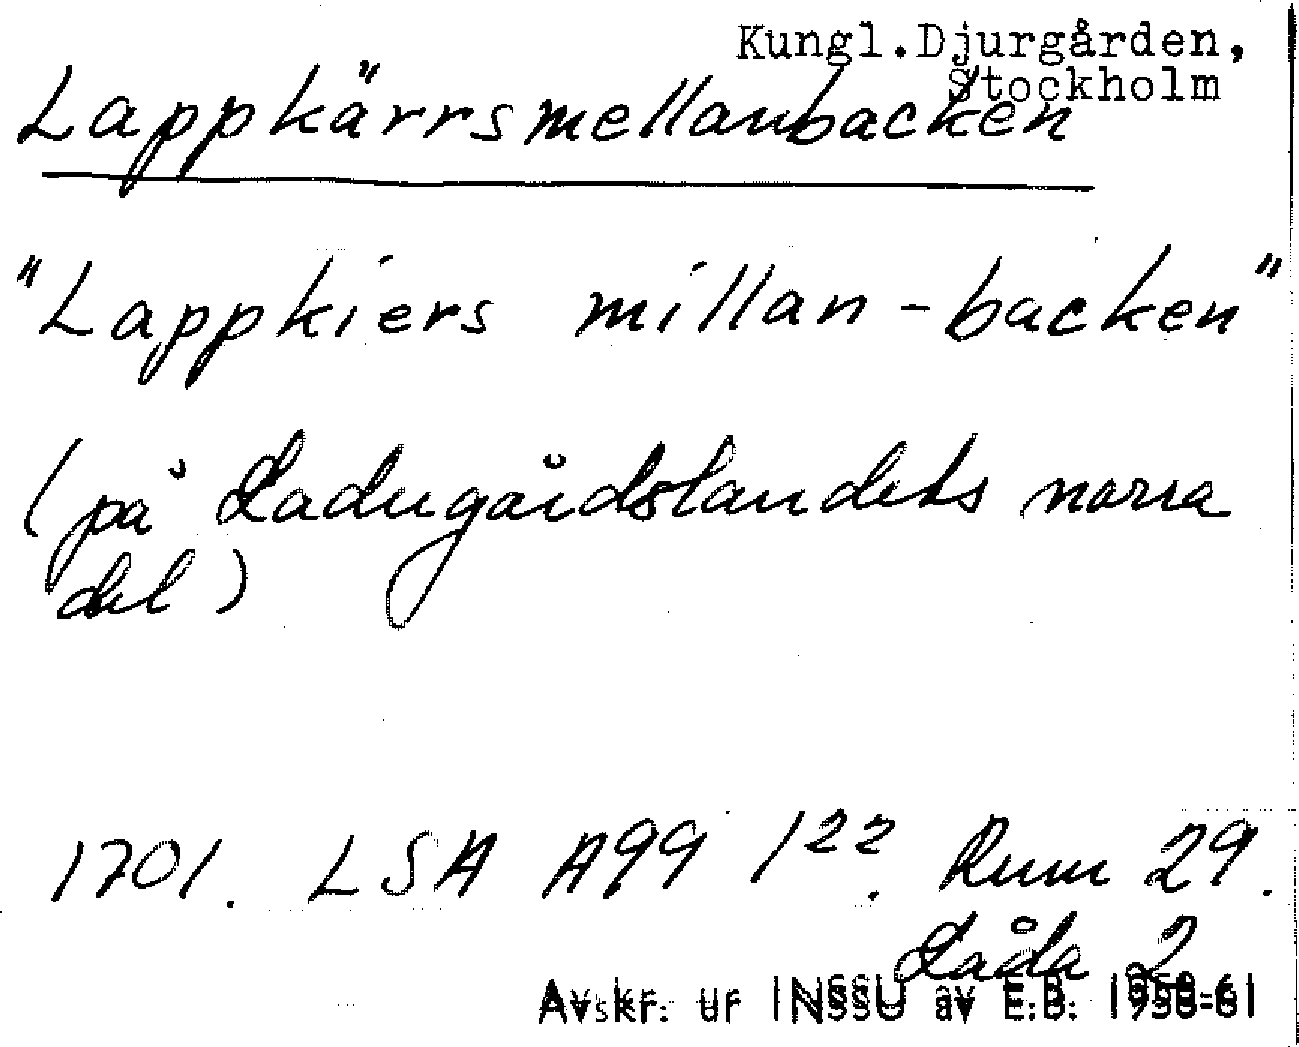 Kungl. Djurgården,
Stockholm
Lappkärrsmellanbacken
"Lappkiers millan-backen"
(på Ladugårdslandets norra
del)
1701. LSA A99 1²². Rum 29.
Låda 2
Avskr. ur INSSU av E.B. 1958-61